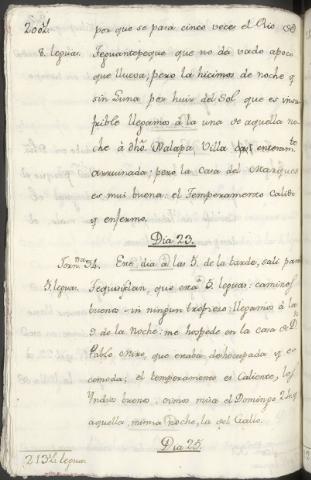 200½ por que se pasa cinco veces el Rio de
8. leguas. Teguantepeque que no da vado apoco
que llueva; pero la hicimos de noche y
sin Luna por huir del Sol, que es insu
frible llegamos à la una de aquella no
che à dhã. Jalapa Villa casi enteram.te
arruinada; pero la Casa del Marques
es mui buena: el Temperamento Calido
y enfermo.
Dia 23.
Jorn.da 34. Este dia à las 5. de la tarde, salì para
5. leguas. Tequisistlan, que està 5. leguas: caminos
buenos sin ningun tropiezo: llegamos à las
9. de la Noche: me hospede en la casa de D.
Pablo que estaba desocupada y co
comoda; el temperamento es Caliente, los
Yndios buenos oimos misa el Domingo 24 y
aquella misma Noche, la del Gallo.
Dia 25.
213½ leguas.